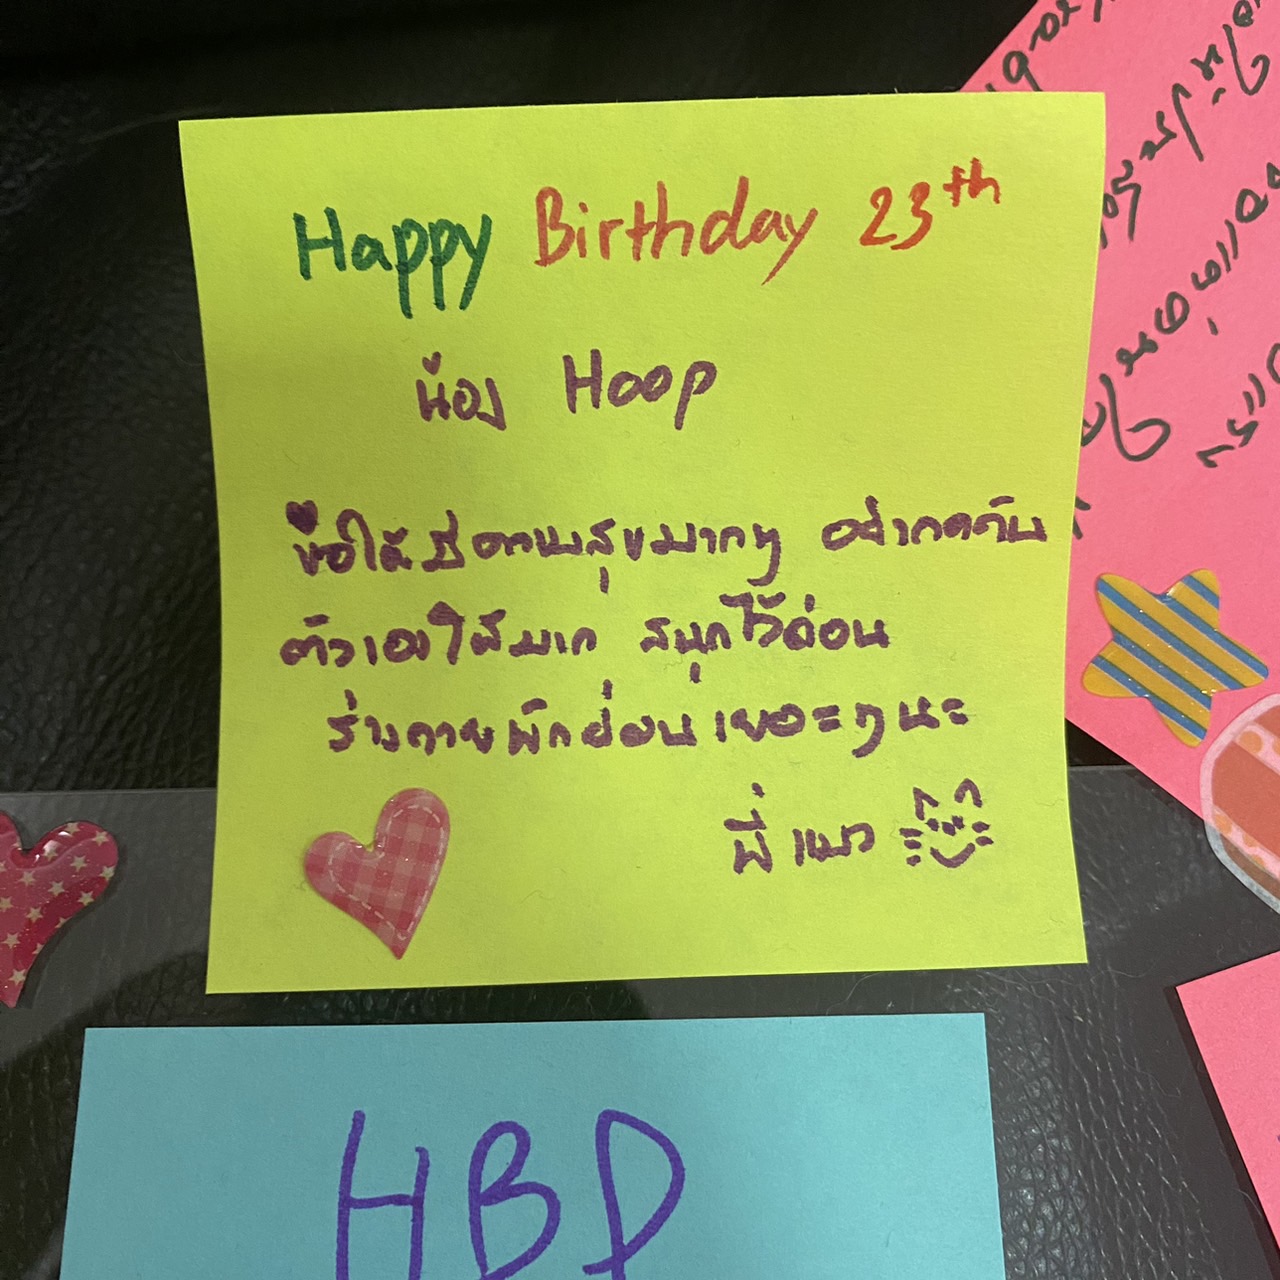 Happy Birthday 23th
น้อง Hoop
ขอให้มีความสุขมากๆ อย่ากดดัน
ตัวเองให้มาก สนุกไว้ก่อน
ร่างกายพักผ่อนเยอะๆนะ
พี่แมว
HBD